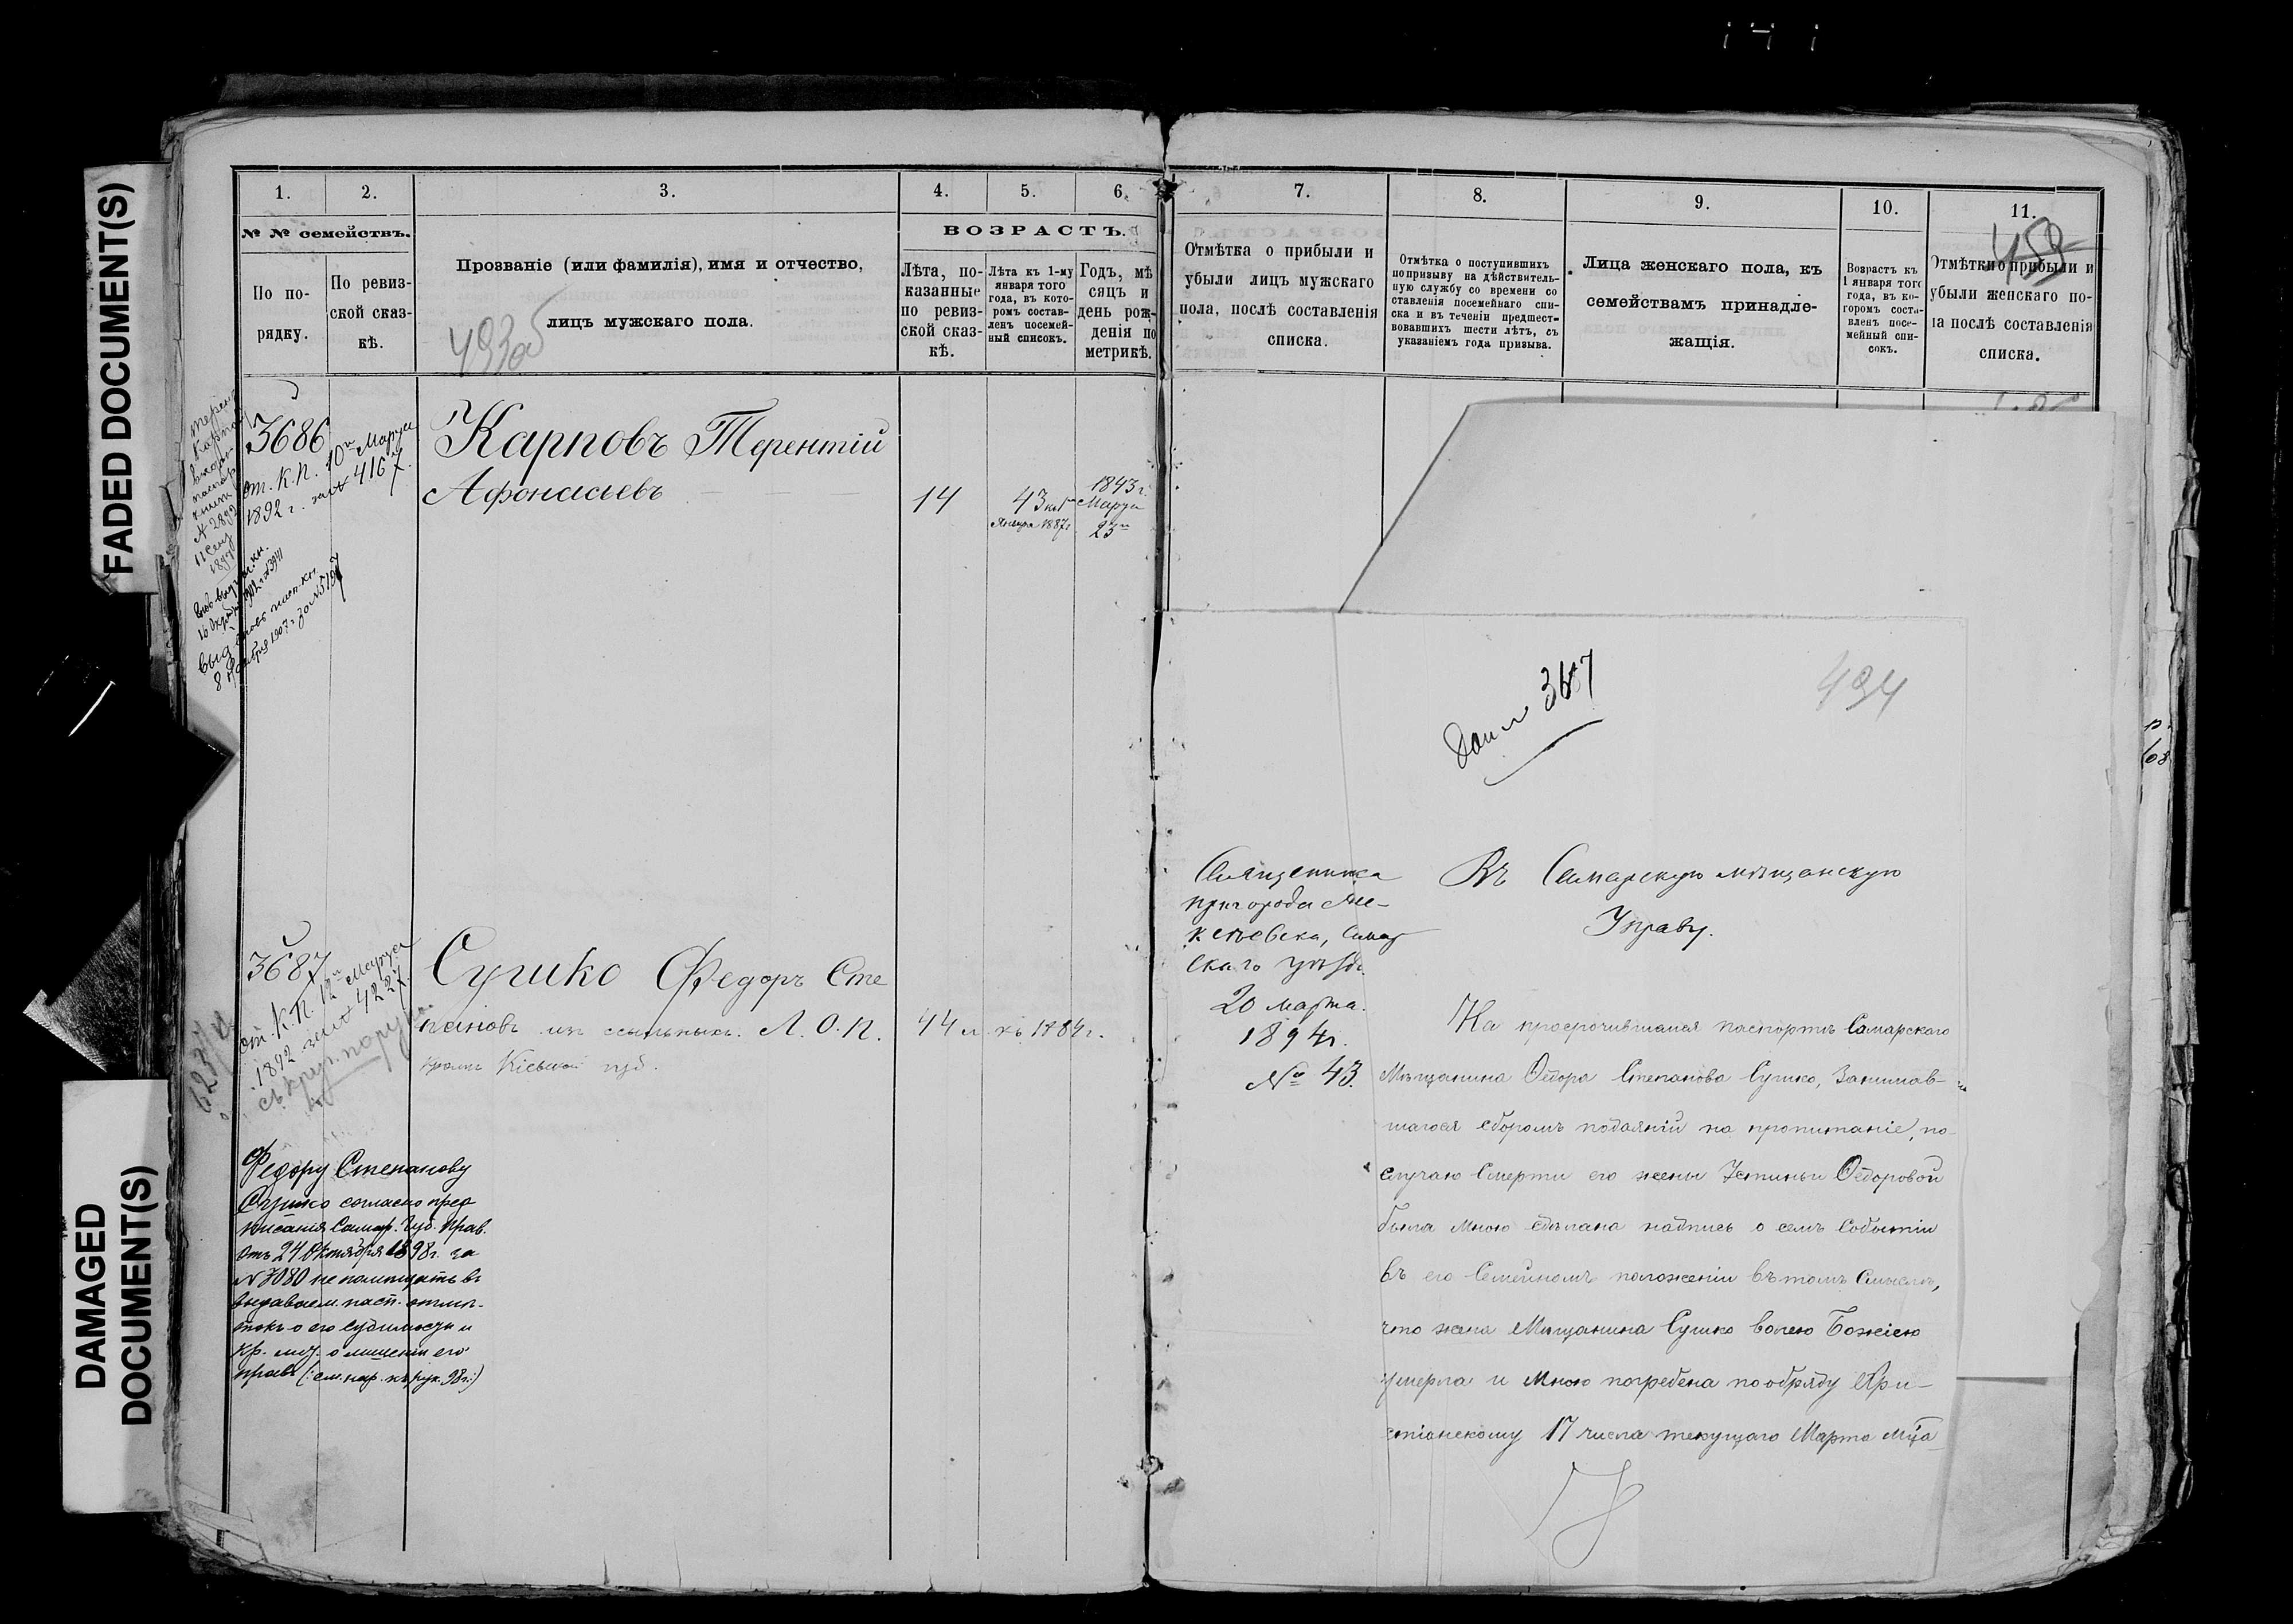 FADED DOCUMENT(S)
DAMAGED
DOCUMENT(S)
1.
2.
3.
4.
5.
6.
№ № семействъ.
ВОЗРАСТЪ.
По по-
рядку.
По ревиз-
ской сказ-
кѣ.
Прозваніе (или фамилія), имя и отчество,
лицъ мужскаго пола.
Лѣта, по-
казанные
по ревиз-
ской сказ-
кѣ.
Лѣта къ 1-му
января того
года, въ кото-
ромъ состав-
ленъ посемей-
ный списокъ.
Годъ, мѣ
сяцъ и
день рож-
денія по
метрикѣ.
3686
от. К. П. 10го Марта
1892 г. за № 4167.
Карповъ Терентій
Афонасьевъ
14
43 к 1му
Января 1887 г.
1843 г.
Марта
23го
3687
от. К. П. 12го Марта
1892 за № 4227.
Сушко Федоръ Сте
пановъ изъ ссыльныхъ. Л. О. П.
Кіевской губ.
44 л. къ 1884 г.
Федору Степанову
Сушко согласно пред
писанія Самар. Губ. Прав.
отъ 24 Октября 1898 г. за
№ 7080 не помещать въ
выдаваем. пасп. отмѣ-
токъ о его судимости и
о лишеніи его
правъ
7.
8.
9.
10.
11.
459
Отмѣтка о прибыли и
убыли лицъ мужскаго
пола, послѣ составленія
списка.
Отмѣтка о поступившихъ
по призыву на дѣйствитель-
ную службу со времени со
ставленія посемейнаго спи-
ска и въ теченіи предшест-
вовавшихъ шести лѣтъ, съ
указаніемъ года призыва.
Лица женскаго пола, къ
семействамъ принадле-
жащія.
Возрастъ къ
1 января того
года, въ ко-
торомъ соста-
вленъ посе-
мейный спи-
сокъ.
Отмѣтки о прибыли и
убыли женскаго по-
ла послѣ составленія
списка.
3687
494
Священника
пригорода Але-
ксѣевска, Самар
скаго уѣзда.
20 марта.
1894 г.
№ 43.
Въ Самарскую мѣщанскую
Управу.
На просрочившемся паспортѣ Самарскаго
Мѣщанина Ѳедора Степанова Сушко, занимав-
шагося сборомъ подаяній на пропитаніе, по
случаю смерти его жены Устиньи Ѳедоровой
была мною сдѣлана надпись о семъ событіи
въ его семейномъ положеніи въ томъ смыслѣ,
что жена Мѣщанина Сушко волею Божіею
умерла и мною погребена по обряду Хри-
стіанскому 17 числа текущаго Марта мца